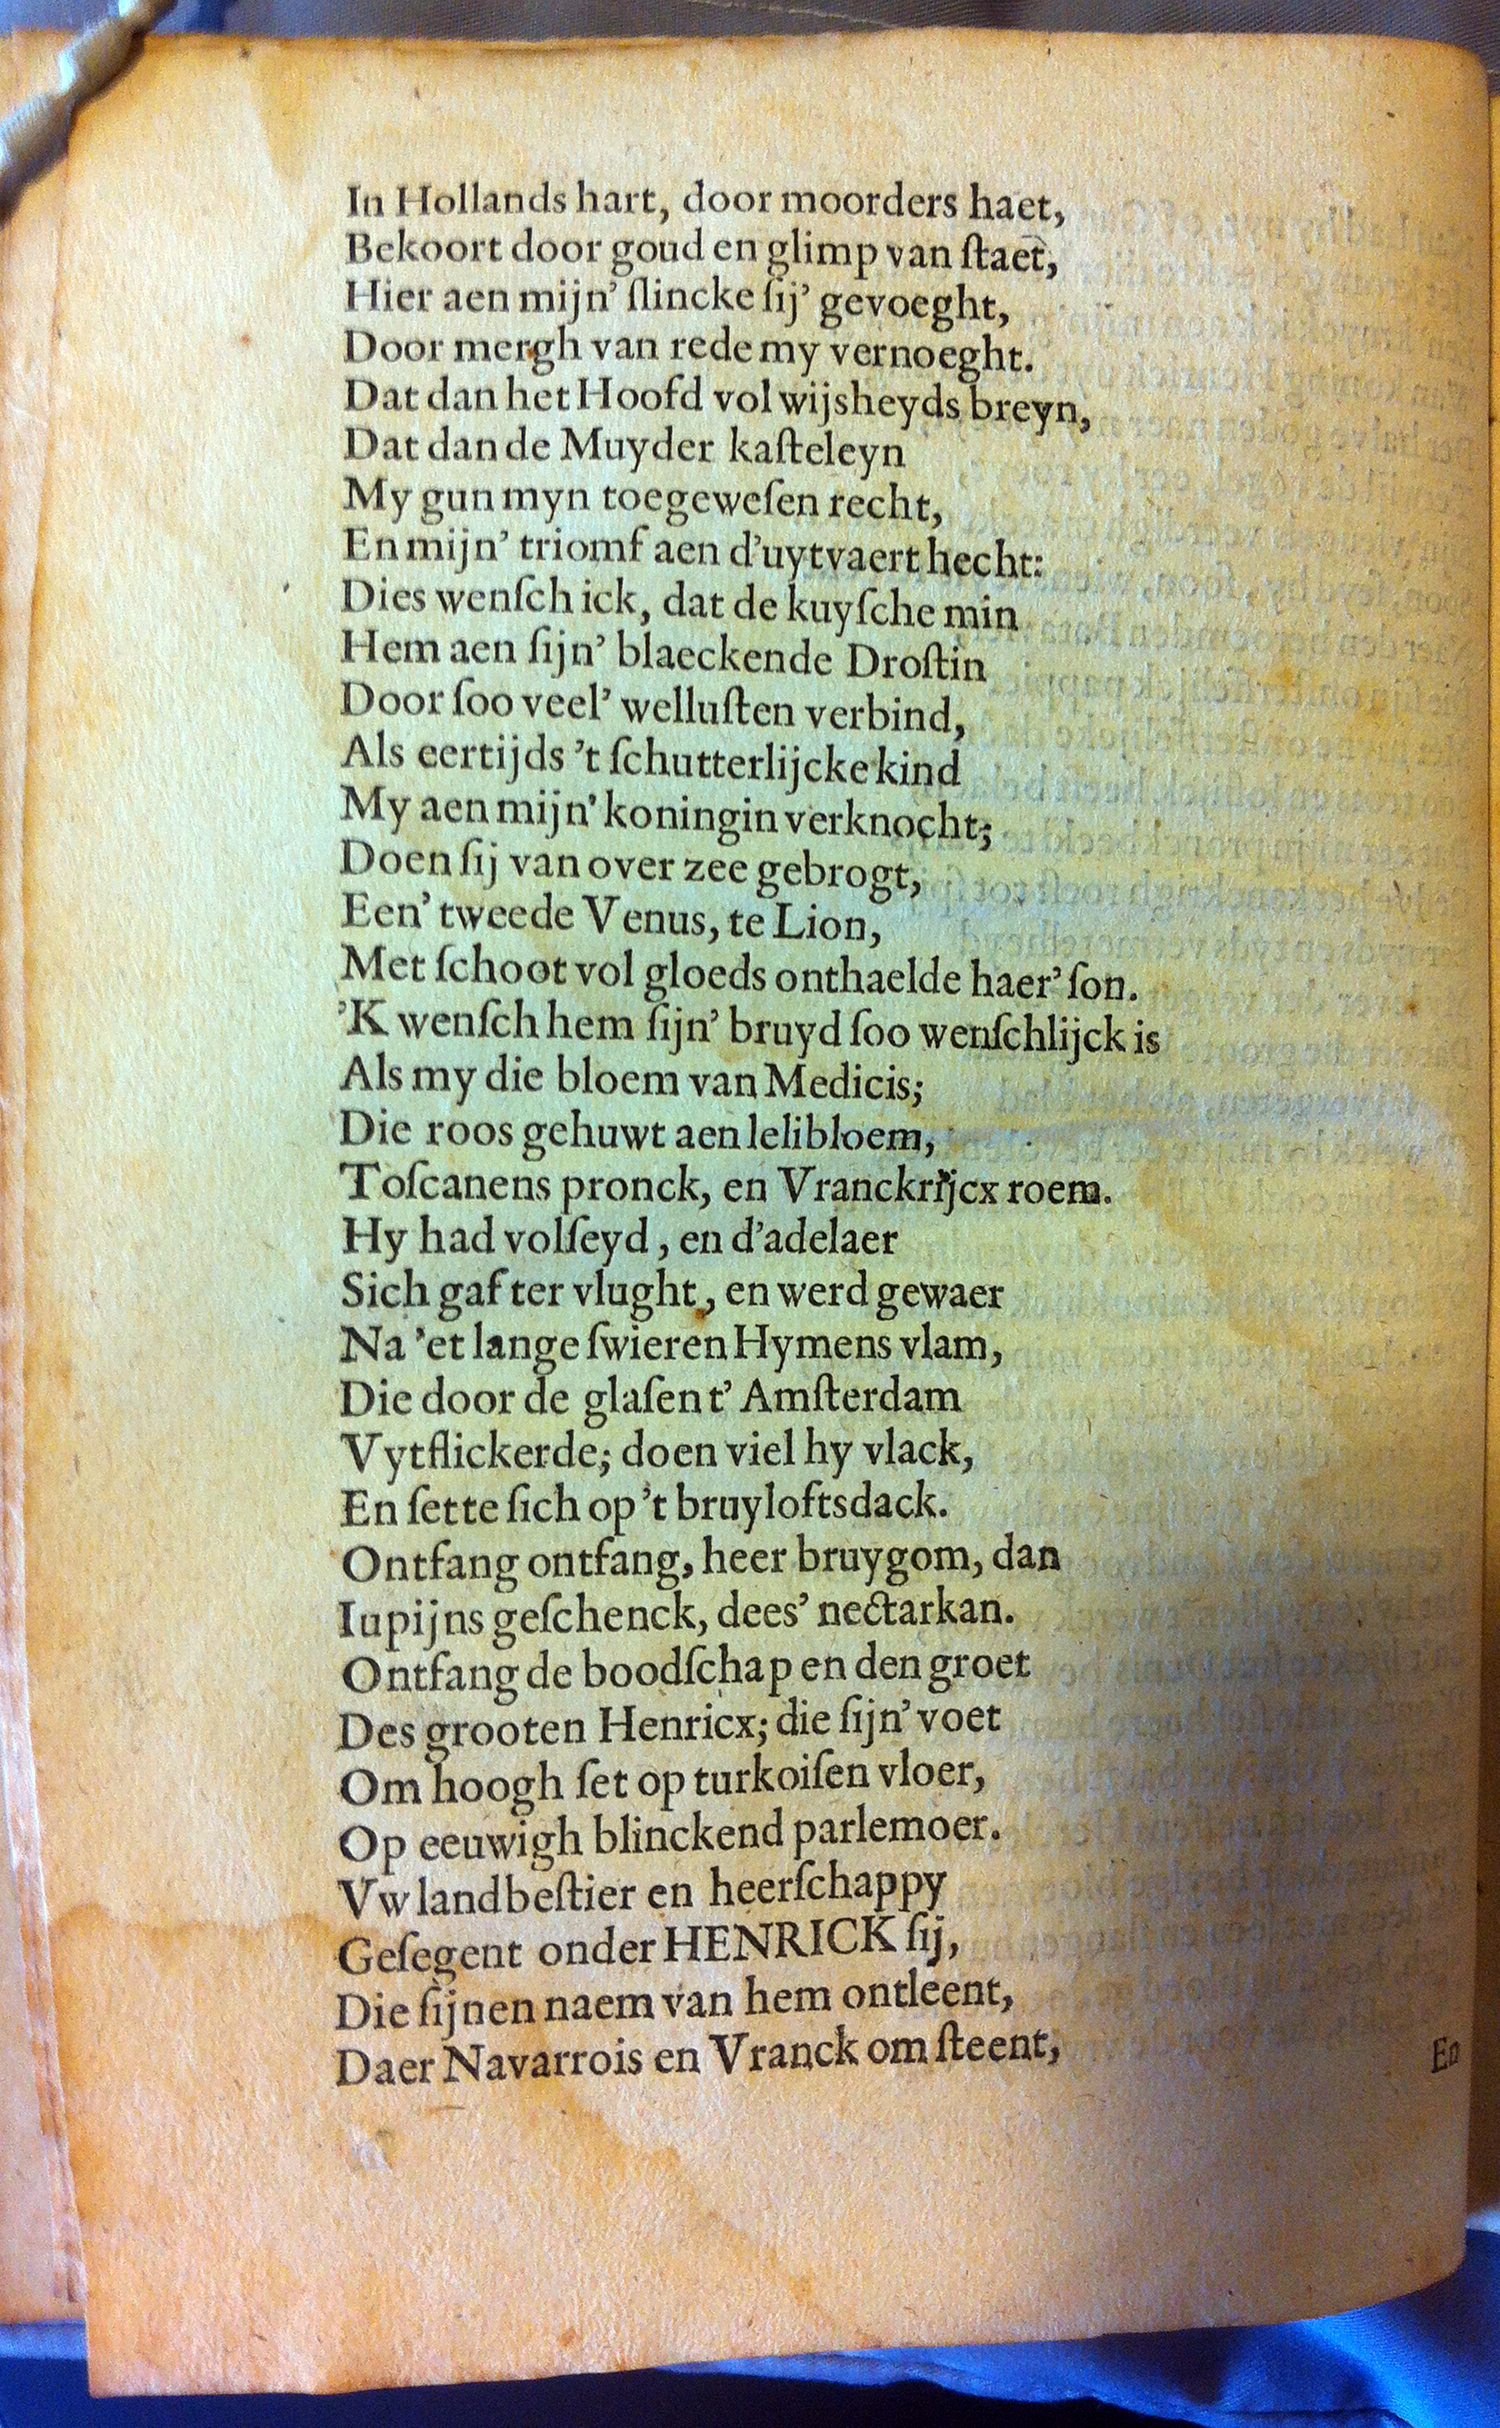 In Hollands hart, door moorders haet,
Bekoort door goud en glimp van ſtaet,
Hier aen mijn’ ſlincke ſij’ gevoeght,
Door mergh van rede my vernoeght.
Dat dan het Hoofd vol wijsheyds breyn,
Dat dan de Muyder kaſteleyn
My gun myn toegeweſen recht,
En mijn’ triomf aen d’uytvaert hecht:
Dies wenſch ick, dat de kuyſche min
Hem aen ſijn’ blaeckende Droſtin
Door ſoo veel’ welluſten verbind,
Als eertijds ’t ſchutterlijcke kind
My aen mijn’ koningin verknocht;
Doen ſij van over zee gebrogt,
Een’ tweede Venus, te Lion,
Met ſchoot vol gloeds onthaelde haer’ ſon.
’K wenſch hem ſijn’ bruyd ſoo wenſchlijck is
Als my die bloem van Medicis;
Die roos gehuwt aen lelibloem,
Toſcanens pronck, en Vranckrijcx roem.
Hy had volſeyd, en d’adelaer
Sich gaf ter vlught, en werd gewaer
Na ’et lange ſwieren Hymens vlam,
Die door de glaſen t’ Amſterdam
Vytflickerde; doen viel hy vlack,
En ſette ſich op ’t bruyloftsdack.
Ontfang ontfang, heer bruygom, dan
Iupijns geſchenck, dees’ nectarkan.
Ontfang de boodſchap en den groet
Des grooten Henricx; die ſijn’ voet
Om hoogh ſet op turkoiſen vloer,
Op eeuwigh blinckend parlemoer.
Vw landbeſtier en heerſchappy
Geſegent onder HENRICK ſij,
Die ſijnen naem van hem ontleent,
Daer Navarrois en Vranck om ſteent,
En